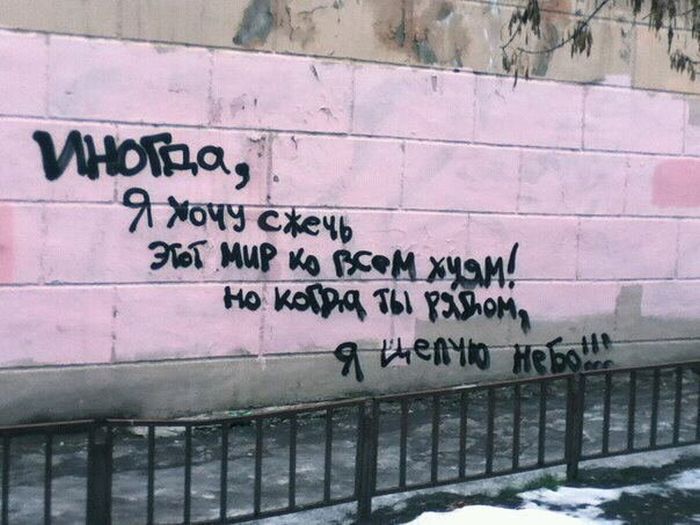 Иногда,
Я хочу сжечь
этот мир ко всем хуям!
но когда ты рядом,
я целую небо!!!